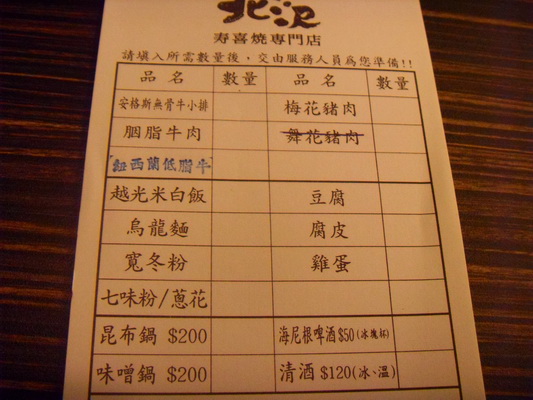 北沢
寿喜燒專門店
請填入所需數量後，交由服務人員為您準備!!
品名 數量 品名 數量
安格斯無骨牛小排 梅花豬肉
胭脂牛肉 舞花豬肉
紐西蘭低脂牛
越光米白飯 豆腐
烏龍麵 腐皮
寬冬粉 雞蛋
七味粉/蔥花
昆布鍋 $200 海尼根啤酒$50(冰塊杯)
味噌鍋 $200 清酒 $120(冰、溫)